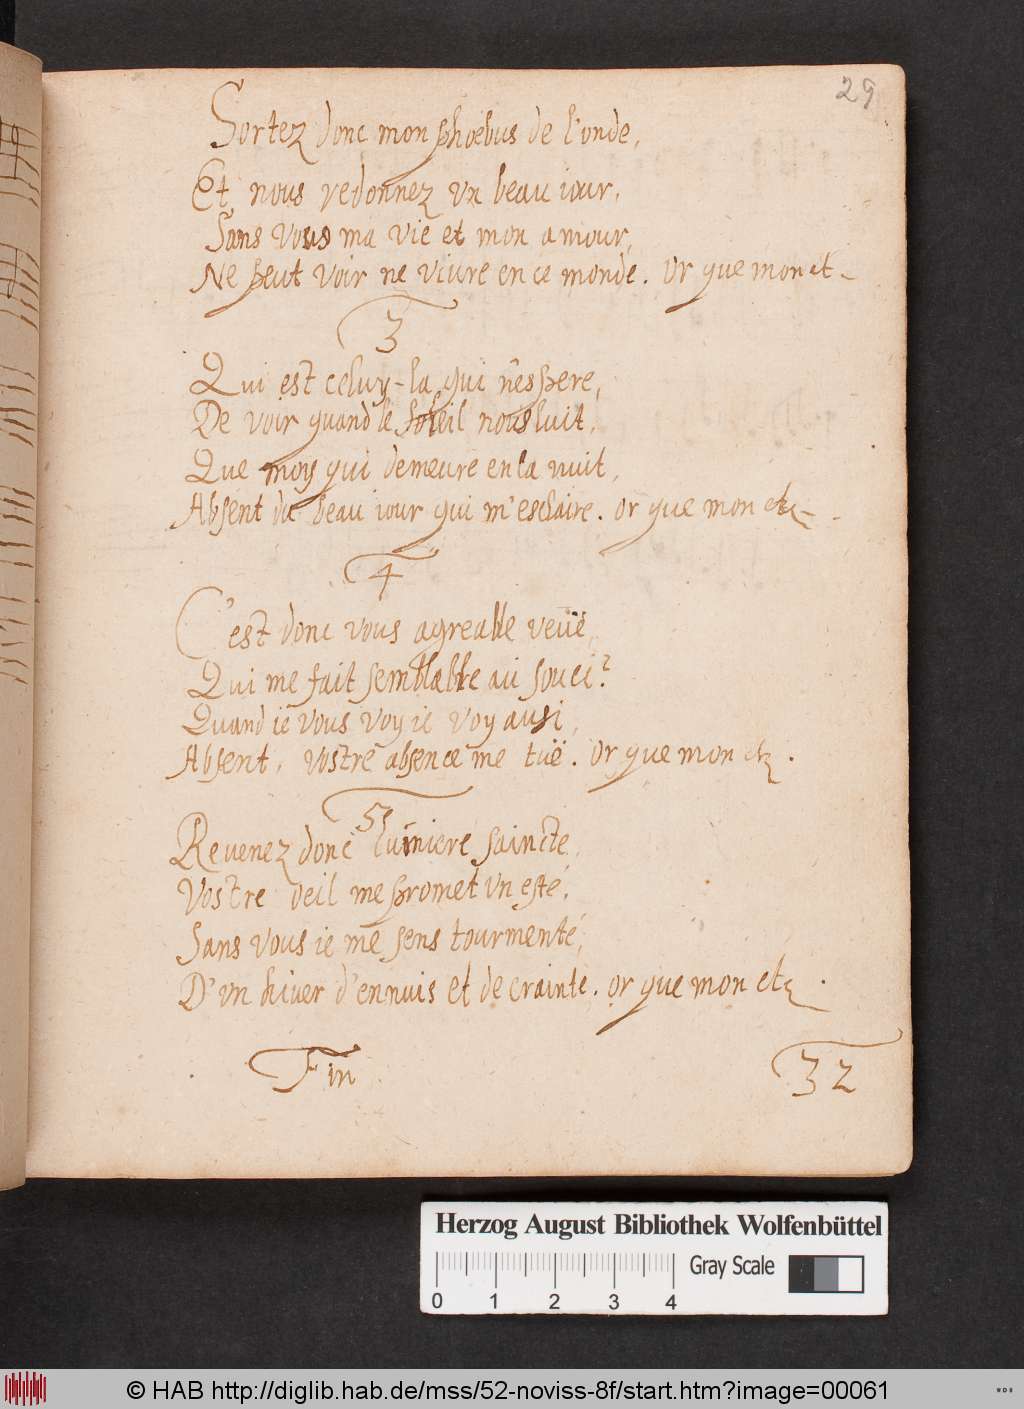 29
Sortez donc mon phoebus de l'onde,
Et nous redonnez vn beau iour,
Sans vous ma vie et mon amour,
Ne peut voir ne viure en ce monde. Or que mon et
3
Qui est celuy-la qui n'espere,
De voir quand le soleil nous luit,
Que moy qui demeure en la nuit,
Absent du beau iour qui m'esclaire. or que mon etc
4
C'est donc vous agreable veuë,
Qui me fait semblable au souci?
Quand ie vous voy ie voy ausi,
Absent, vostre absence me tuë. Or que mon etc.
5
Reuenez donc lumiere saincte,
Vostre oeil me promet vn esté,
Sans vous ie me sens tourmenté,
D'vn hiuer d'ennuis et de crainte. or que mon etc.
Fin
32
Herzog August Bibliothek Wolfenbüttel
Gray Scale
0 1 2 3 4
© HAB http://diglib.hab.de/mss/52-noviss-8f/start.htm?image=00061